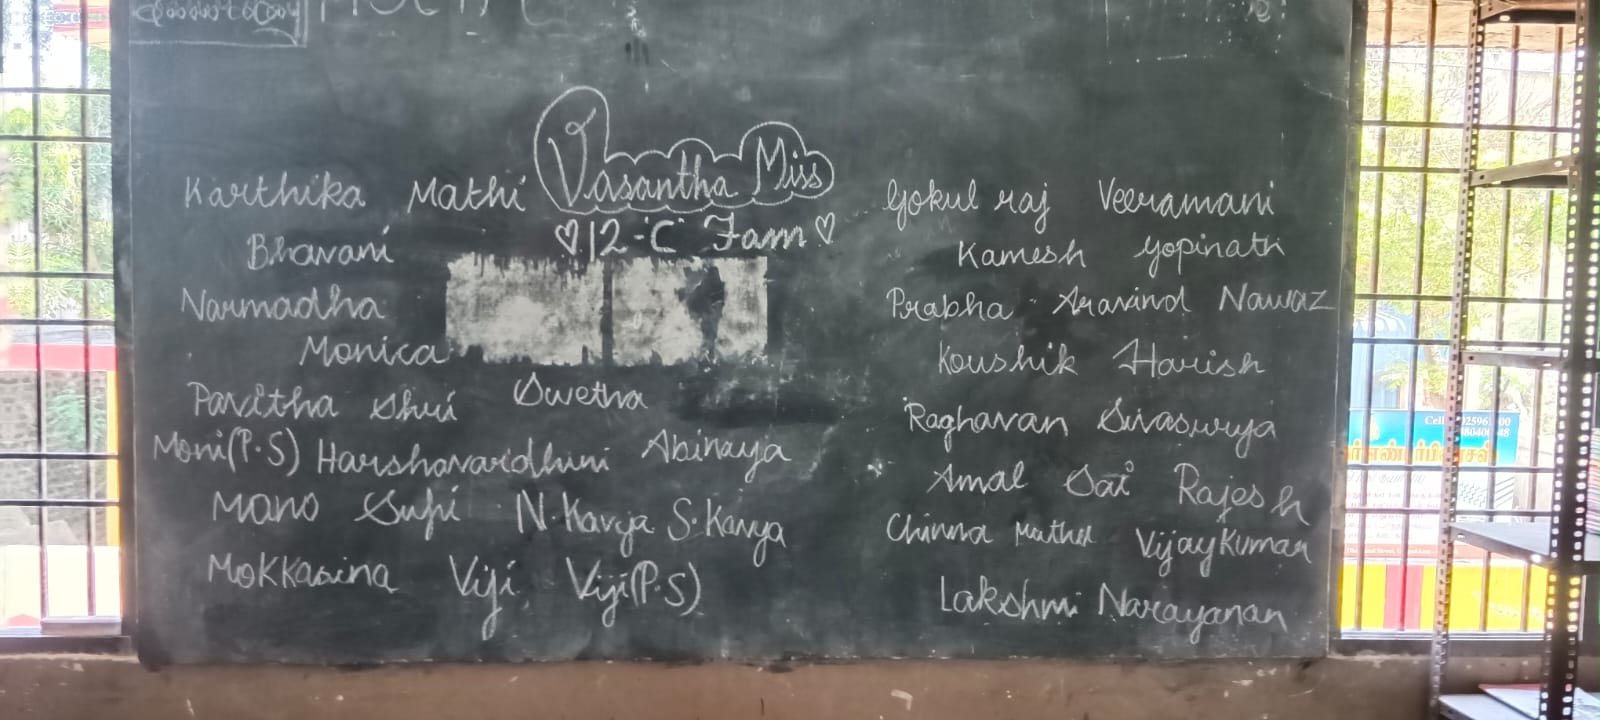 Vasantha Miss
♡ 12-C Fam ♡
Karthika Mathi
Bhavani
Narmadha
Monica
Swetha
Pavitha Shri
Moni(P.S) Harshavardhini Abinaya
Mano Sufi N.Kavya S.Kavya
Mokkasina Viji Viji(P.S)
Gokul raj Veeramani
Kamesh Gopinath
Prabha Aravind Nawaz
Koushik Harish
Raghavan Sivasurya
Amal Sai Rajesh
Chinna Muthu VijayKumar
Lakshmi Narayanan